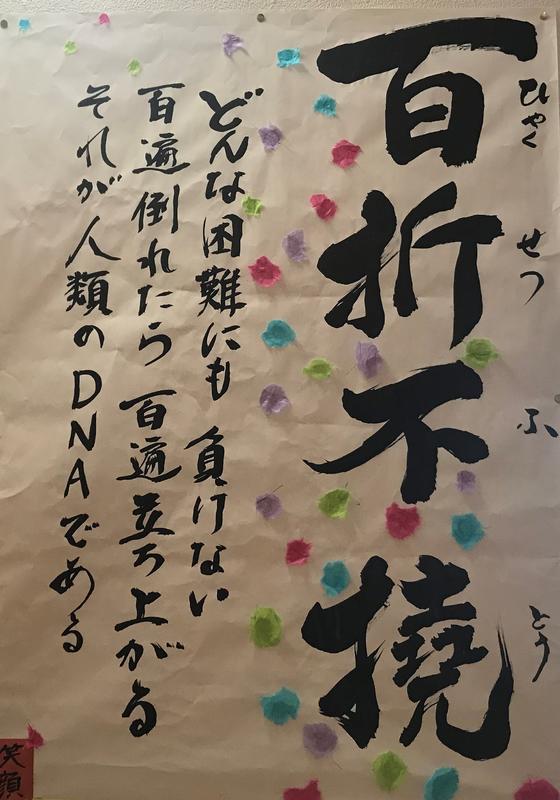 ひゃく せつ ふ とう
百折不撓
どんな困難にも 負けない
百遍倒れたら 百遍立ち上がる
それが人類のDNAである
笑顔